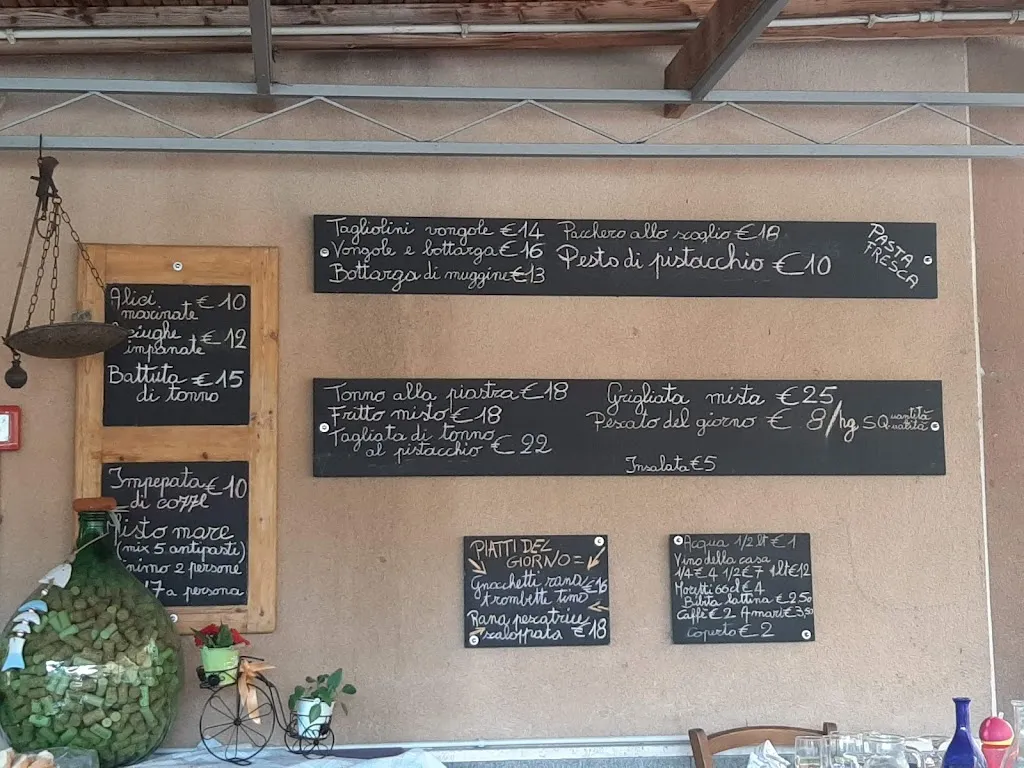 Tagliolini vongole €14
Vongole e bottarga €16
Bottarga di muggine €13
Pacchero allo scoglio €18
Pesto di pistacchio €10
PASTA
FRESCA
Alici €10
marinate
impanate €12
Battuta €15
di tonno
Impepata €10
di cozze
Misto mare
(mix 5 antipasti)
2 persone
a persona
Tonno alla piastra €18
Fritto misto €18
Tagliata di tonno
al pistacchio €22
Grigliata mista €25
Pescato del giorno € 8/hg SQ uantità
ualità
Insalata €5
PIATTI DEL
GIORNO =
Gnocchetti rana €16
trombette timo
Rana pescatrice
scaloppata €18
Acqua 1/2 lt €1
Vino della casa
1/4 €4 1/2 €7 1lt €12
Moretti 66cl €4
Bibita lattina €2,50
Caffè €2 Amari €3,50
Coperto €2